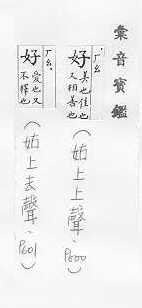 彙音寶鑑
好 ㄏㄠ 美也佳也
又相善也
(姑上上聲、P600)
好 ㄏㄠ 愛也又
不釋也
(姑上去聲、P601)